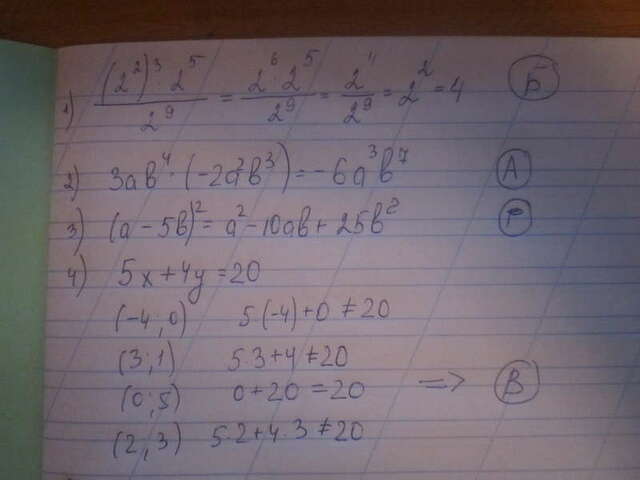 1) (2²)³ · 2⁵ / 2⁹ = 2⁶ · 2⁵ / 2⁹ = 2¹¹ / 2⁹ = 2² = 4 Б
2) 3ab⁴ · (-2a²b³) = -6a³b⁷ А
3) (a - 5b)² = a² - 10ab + 25b² Г
4) 5x + 4y = 20
(-4; 0) 5·(-4) + 0 ≠ 20
(3; 1) 5·3 + 4 ≠ 20
(0; 5) 0 + 20 = 20 => В
(2; 3) 5·2 + 4·3 ≠ 20